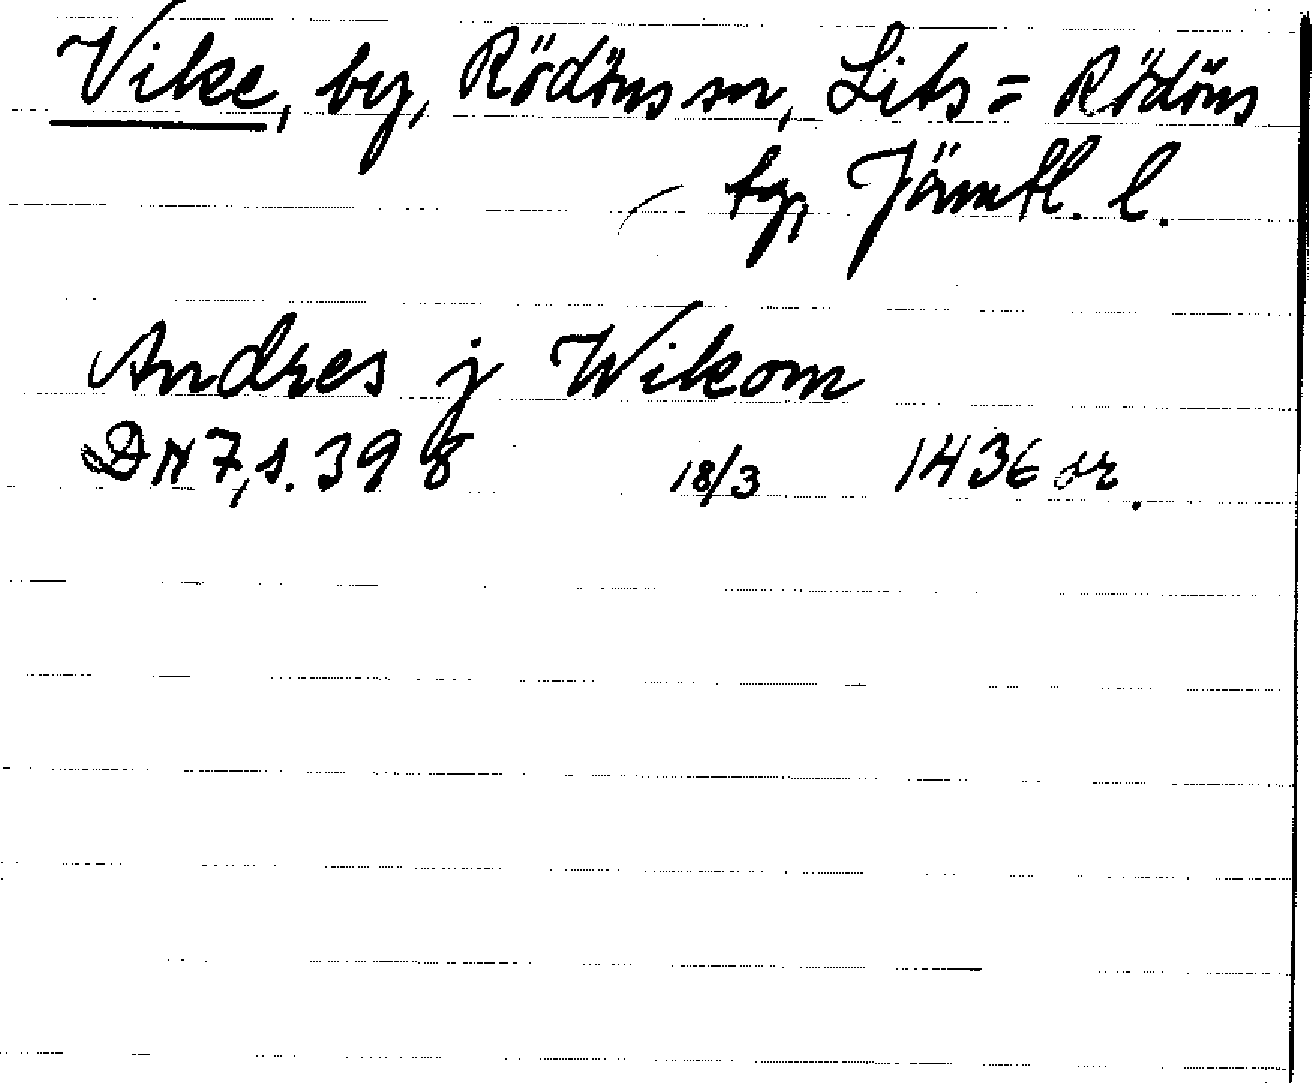 Vike, by, Rödöns sn, Lits = Rödöns
tg, Jämtl. l.
Andres j Wikom
DN 7, s. 398 18/3 1436 or.